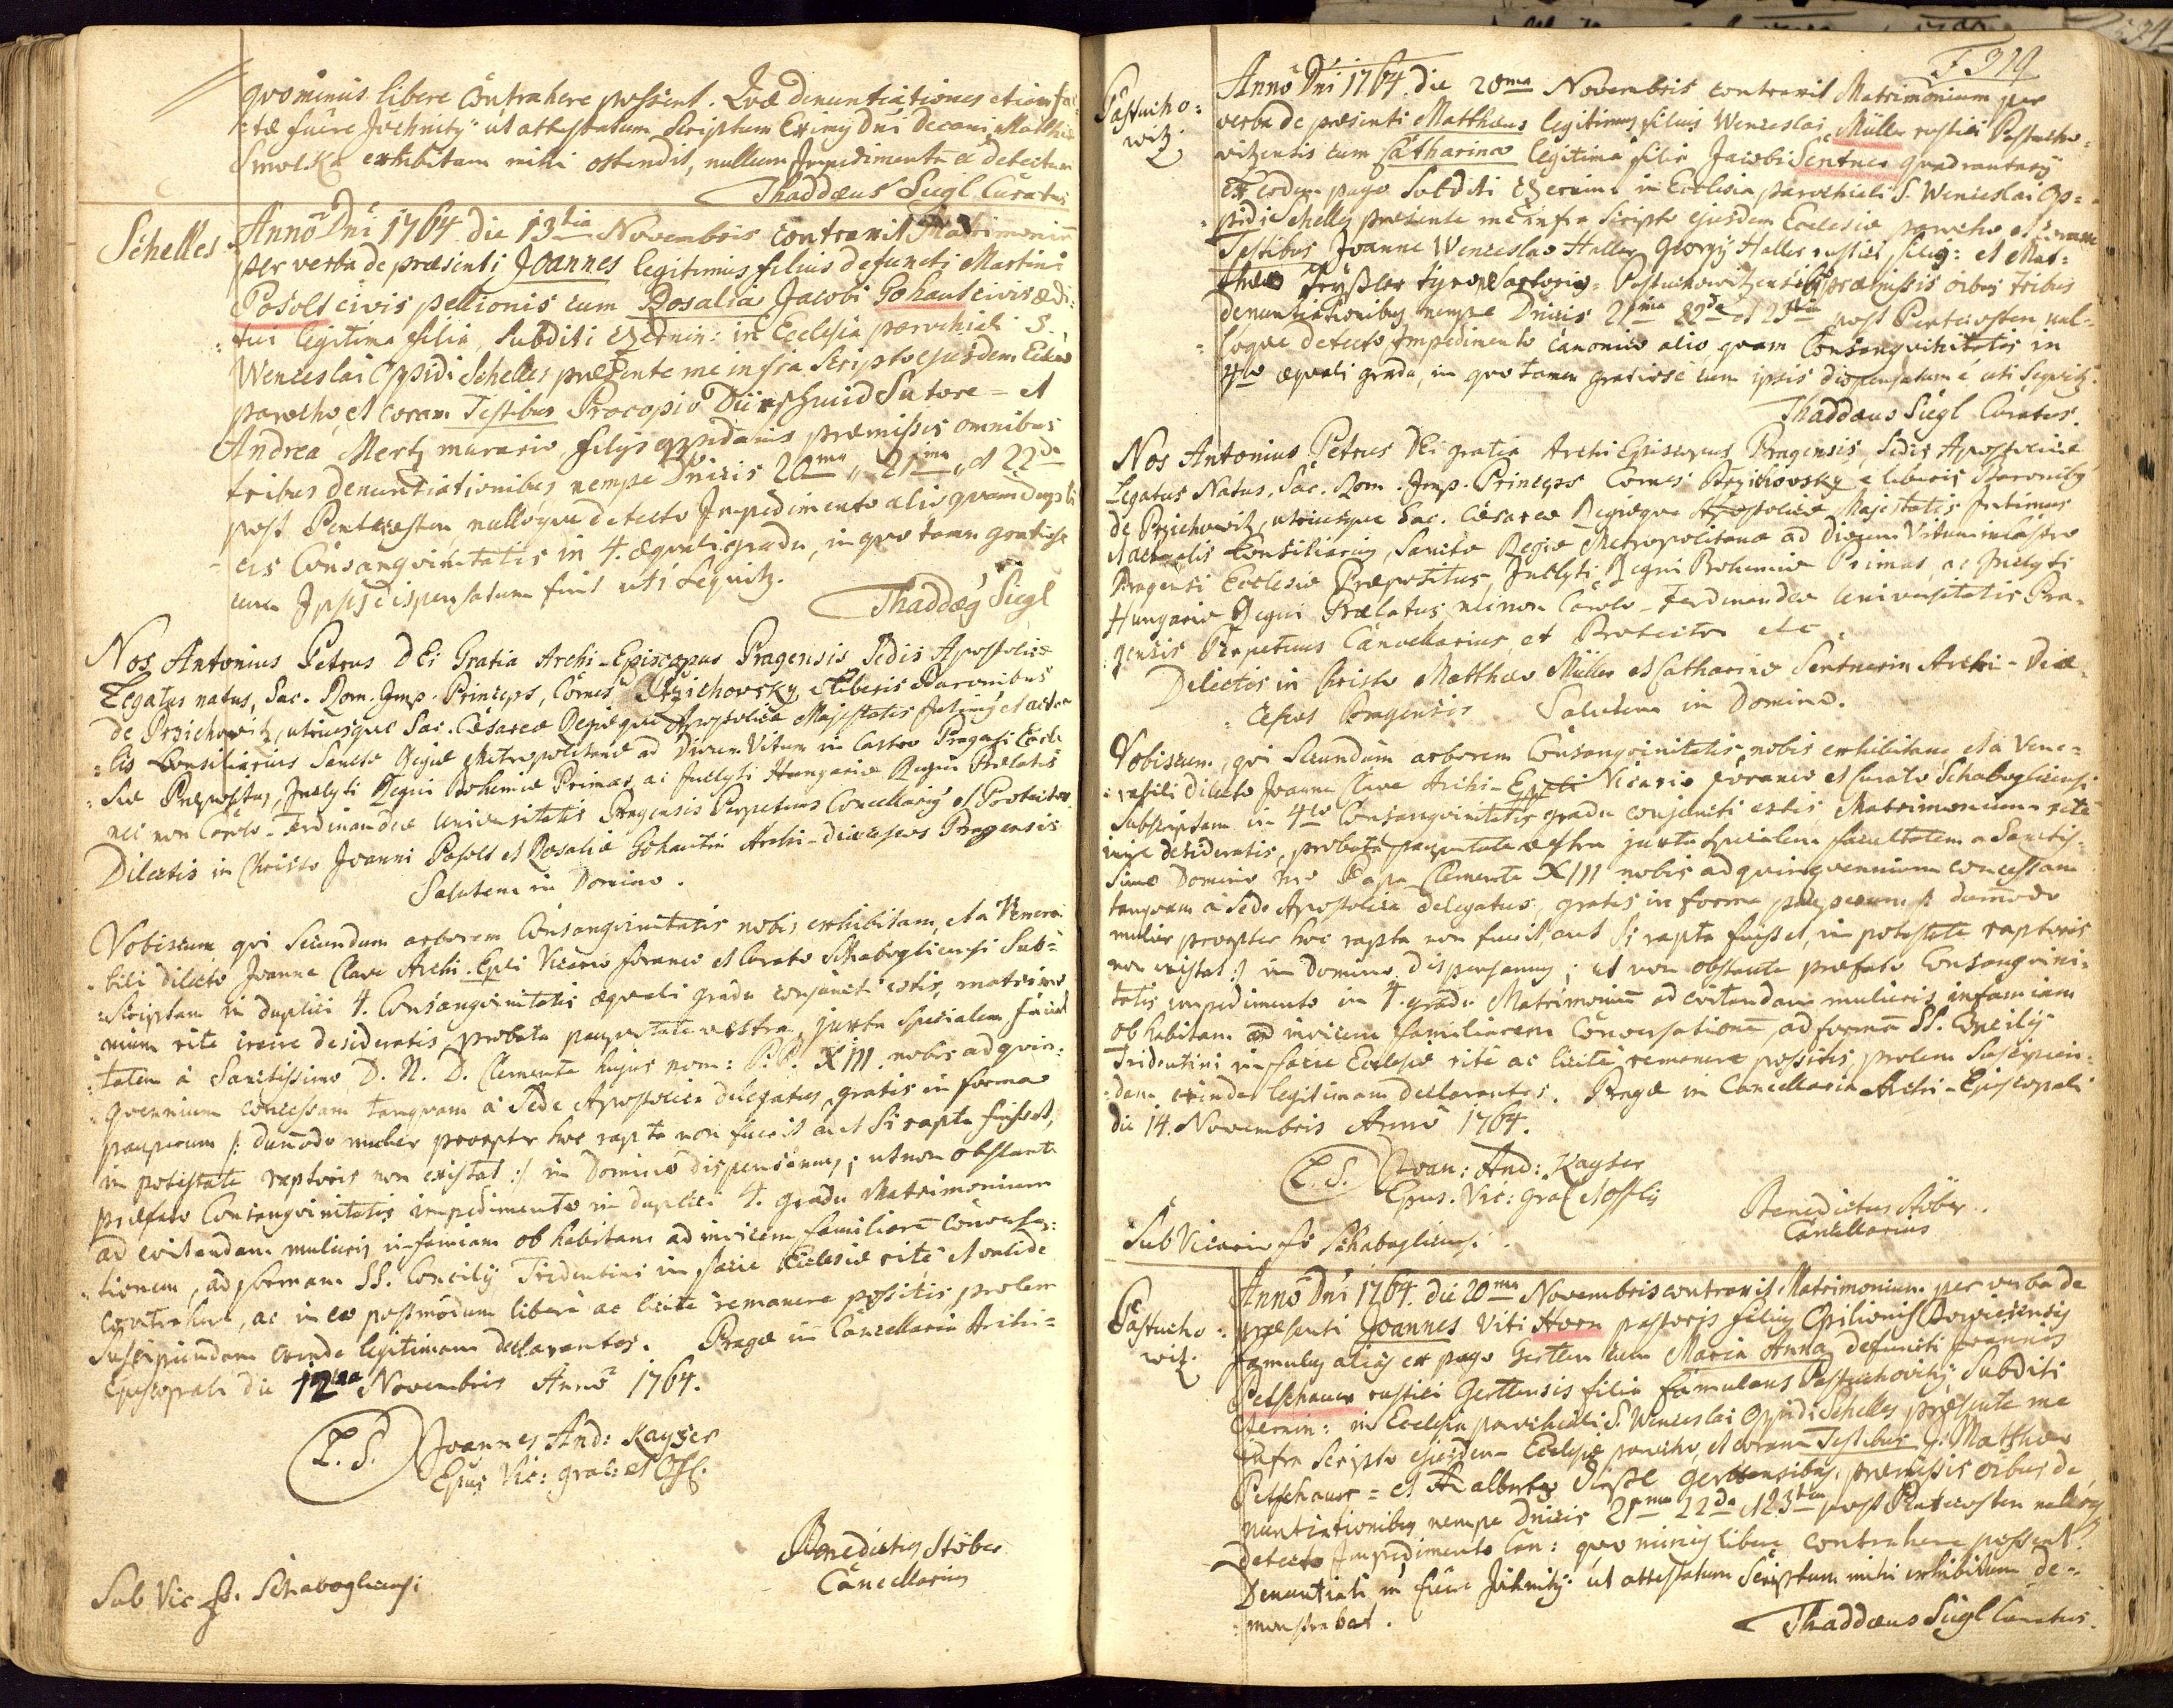 quominus libere contrahere possent. Quæ denuntiationes etiam fac
tæ fuêre Jechnitÿ ut attestatum Scriptum Eximÿ Dni Decani Matthiæ
Smolka exhibitum mihi ostendit, nullum Impedimentū é detectum
Thaddæus Siegl Curatus
Schelles
Annô Dni 1764 die 13tia Novembris contraxit Matrimoniū
per verba de præsenti Joannes legitimus filius defuncti Martini
Posolt civis pellionis cum Rosalia Jacobi Gohaut civis ædi-
tui legitima filia, Subditi Czernin: in Ecclesia parochiali S.
Wenceslai Oppidi Schelles præsente me infra Scripto ejusdem Ecclæ
parocho, et coram Testibus Procopio Dürschmid Sutore = et
Andrea Mertz murario filÿs oppidanis præmissis omnibus
tribus denuntiationibus nempe Dnicis 20ma, 21ma, et 22da
post Pentecosten nullôque detecto Impedimento alio quam dupli
cis Consanguinitatis in 4. æquali gradu, in quo tamen gratiose
cum Ipsis dispensatum fuit uti Sequitr.
Thaddæg Siegl
Nos Antonius Petrus DEi Gratia Archi-Episcopus Pragensis Sedis Apostolicæ
Legatus natus, Sac. Rom. Imp. Princeps, Comes Przichovsky, è liberis Baronibus
de Przichowitz, utriusque Sac. Cæsareæ Regiæque Apostolicæ Majestatis Intimg et actua
lis Consiliarius Sanctæ Regiæ Metropolitanæ ad Divum Vitum in Castro Pragensi Eccle
siæ Præpositus, Inclyti Regni Bohemiæ Primas, ac Inclyti Hungariæ Regni Prælatus
nec non Carolo-Ferdinandeæ Universitatis Pragensis Perpetuus Cancellarig et Protector
Dilectis in Christo Joanni Posolt et Rosaliæ Gohautin Archi-diœceseos Pragensis
Salutem in Domino.
Vobiscum, qvi Secundum arborem Consangvinitatis nobis exhibitam, et a Venera
bili dilecto Joanne Clave Archi-Eppli Vicario foraneo et Curato Schaboglicensi Sub-
scriptam in duplici 4. Consangvinitatis æquali gradu conjuncti estis, matrimo
nium rite inire desideratis, probata paupertate vestra, juxta specialem facul
tatem à Sanctissimo D. N. D. Clemente hujus nom: P.P. XIII. nobis ad qvin-
quennium concessam tamquam à Sede Apostolica delegatus, gratis in forma
pauperum /: dum̄odo mulier propter hoc rapta non fuerit aut si rapta fuisset,
in potestate raptoris non existat :/ in Domino dispensamus; ut non obstante
præfato Consangvinitatis impedimento in duplici 4. gradu Matrimonium
ad evitandam mulieris infamiam ob habitam ad invicem familiarē conversa-
tionem, ad formam SS. Concilÿ Tridentini in facie Ecclesiæ rite et valide
contrahere, ac in eo postmodum libere ac licite remanere possitis prolem
Suscipiendam exinde legitimam declarantes. Pragæ in Cancellaria Archi-
Episcopali die 12ma Novembris Anno 1764.
L. S.
Joannes And: Kayser
Epus Vic: gral: et Off.
Benedictus Stöber
Cancellarius
Sub Vic fo. Schaboglicensi
F 319
Pastucho-
witz.
Annô Dni 1764. die 20ma Novembris contraxit Matrimonium per
verba de præsenti Matthæus legitimus filius Wenceslai Müller rustici Pastucho-
vitzensis cum Catharina legitima filia Jacobi Sentner quadrantarÿ
Ex eodem pago Subditi Czernin: in Ecclesia parochiali S. Wenceslai Op-
pidi Schelles præsente me infra Scripto ejusdem Ecclesiæ parocho et coram
Testibus Joanne Wenceslao Haller Georgÿ Haller rustici filig: et Mat-
thæo Trÿßler tyrone Sartorig = Pastuchowitzensibg præmissis oibus tribus
denuntiationibg nempe Dnicis 21ma 22da et 23tia post Pentecosten nul-
loque detecto Impedimento Canonico alio quam Consangvinitatis in
4to æquali gradu, in quo tamen gratiose cum ipsis dispensatum é uti Sequitr.
Thaddæus Siegl Curatus.
Nos Antonius Petrus DEi gratia Archi Episcopus Pragensis, Sedis Apostolicæ
Legatus Natus, Sac. Rom. Imp. Princeps Comes Przichovsky è liberis Baronibg
de Przichowitz, utriusque Sac. Cæsareæ Regiæque Apostolicæ Majestatis Intimus
et actualis Consiliarius, Sanctæ Regiæ Metropolitanæ ad Divum Vitum in Castro
Pragensi Ecclesiæ Præpositus, Inclyti Regni Bohemiæ Primas, ac Inclyti
Hungariæ Regni Prælatus, nec non Carolo-Ferdinandeæ Universitatis Pra-
gensis Perpetuus Cancellarius, et Protector etc.
Dilectis in Christo Matthæo Müller et Catharinæ Sentnerin Archi-Diœ-
ceseos Pragensis Salutem in Domino.
Vobiscum, qvi Secundum arborem Consangvinitatis, nobis exhibitam, et à Vene-
rabili dilecto Joanne Clave Archi-Eppli Vicario foraneo et Curato Schaboglicensi
subscriptam in 4to Consangvinitatis gradu conjuncti estis Matrimonium rite
inire desideratis, probata paupertate vestra juxta specialem facultatem a Sanctis-
simo Domino nro Papa Clemente XIII nobis ad quinqvennium concessam
tamquam à Sede Apostolica delegatus, gratis in forma pauperum /: dum̄odo
mulier propter hoc rapta non fuerit, aut si rapta fuisset, in potestate raptoris
non existat :/ in Domino dispensamus; ut non obstante præfato Consangvini-
tatis impedimento in 4. gradu Matrimoniū ad evitandam mulieris infamiam
ob habitam ad invicem familiarem Conversationē, ad formā SS. Concilÿ
Tridentini in facie Ecclesiæ rite ac licitè remanere possitis, prolem Suscipien-
dam exinde legitimam declarantes. Pragæ in Cancellaria Archi-Episcopali
die 14. Novembris Anno 1764.
L. S.
Joan: And: Kayser
Epus. Vic: gral et Offlis
Benedictus Stöber.
Cancellarius
Sub Vicario fo Schaboglicensi.
Pastucho-
witz.
Annô Dni 1764. die 20ma Novembris contraxit Matrimonium per verba de
præsenti Joannes Viti Horn pastoris filius Opilionis
famulus aliàs ex pago Gertten cum Maria Anna defuncti Joannis
Petschauer rustici Gerttensis filia famulans Pastuchovitÿ Subditi
Czernin: in Ecclesia parochiali S. Wenceslai Oppidi Schelles præsente me
infra Scripto ejusdem Ecclesiæ parocho, et coram Testibus J. Matthæo
Petschauer = et Adalberto Gerttensibus, præmissis oibus de
nuntiationibg nempe Dnicis 21ma 22da et 23tia post Pentecosten nulloq
detecto Impedimento Can: quo minus libere contrahere possent.
Denuntiati é fuêre Jechnitÿ ut attestatum Scriptum mihi exhibitum de-
monstrabat.
Thaddæus Siegl Curatus.